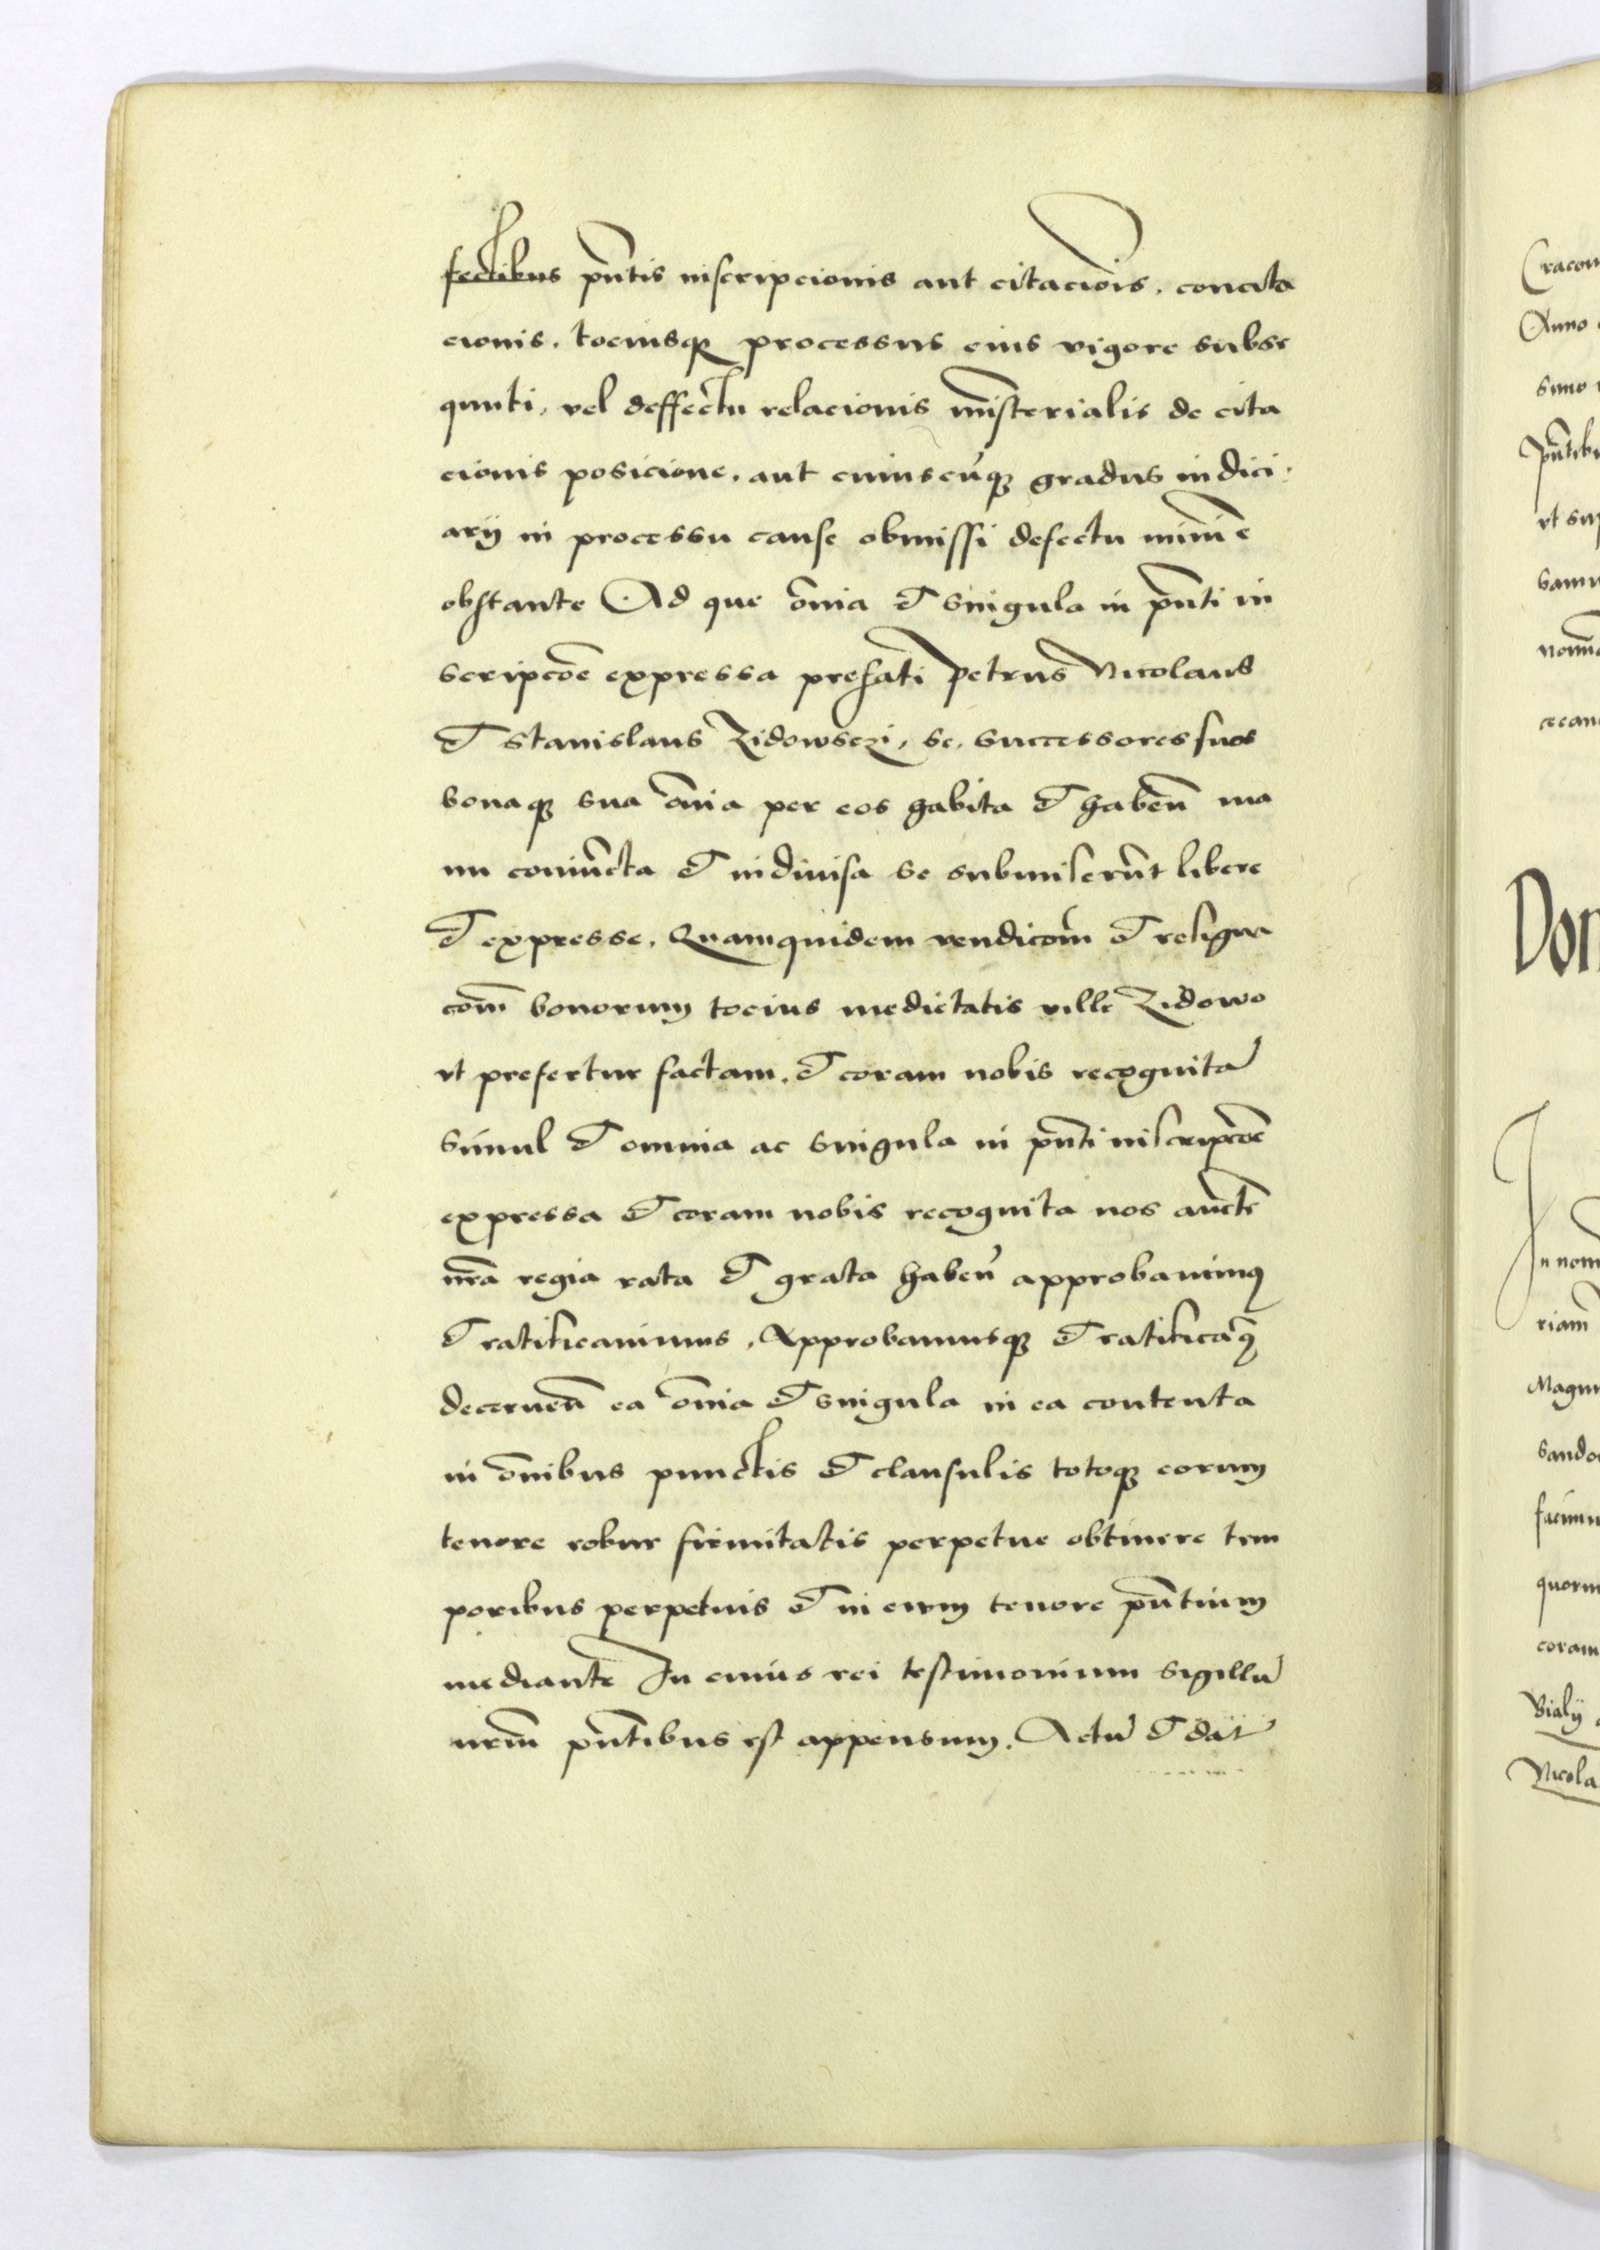 fectibus pn̄tis inscripcionis aut citaciōis, concita
cionis, tociusqꝫ processus eius vigore subse
qunti, vel deffectu relacionis mīsterialis de cita
cionis posicione, aut cuiuscūqꝫ gradus iudici
arij in processu cause obmissi defectu minīe
obstante Ad que om̄ia et singula in pn̄ti in
scripcōe expressa prefati Petrus Nicolaus
et Stanislaus Zidowsczi, se, successores suos
bonaqꝫ sua om̄ia per eos habita et haben̄ ma
nu coniūcta et indiuisa se submiserūt libere
et expresse, Quamquidem vendicōm et resigna
cōm bonorum tocius medietatis ville Zidowo
vt prefertur factam, et coram nobis recognitā
simul et omnia ac singula in pn̄ti inscripcōe
expressa et coram nobis recognita nos auctē
nr̄a regia rata et grata haben̄ approbauimꝰ
et ratificauimus, Approbamusqꝫ et ratificāꝰ
decernen̄ ea om̄ia et singula in ea contenta
in om̄ibus punctis et clausulis totoqꝫ eorum
tenore robur firmitatis perpetue obtinere tem
poribus perpetuis et in eum tenore pn̄tium
mediante In cuius rei testimonium sigillū
nrm̄ pn̄tibus est appensum. Actū et dat̄
Cracou
Anno
Pn̄tibu
vt sup
Don
In nom
riam
Magni
sando
facimu
quorum
coram
Bialij
Nicola